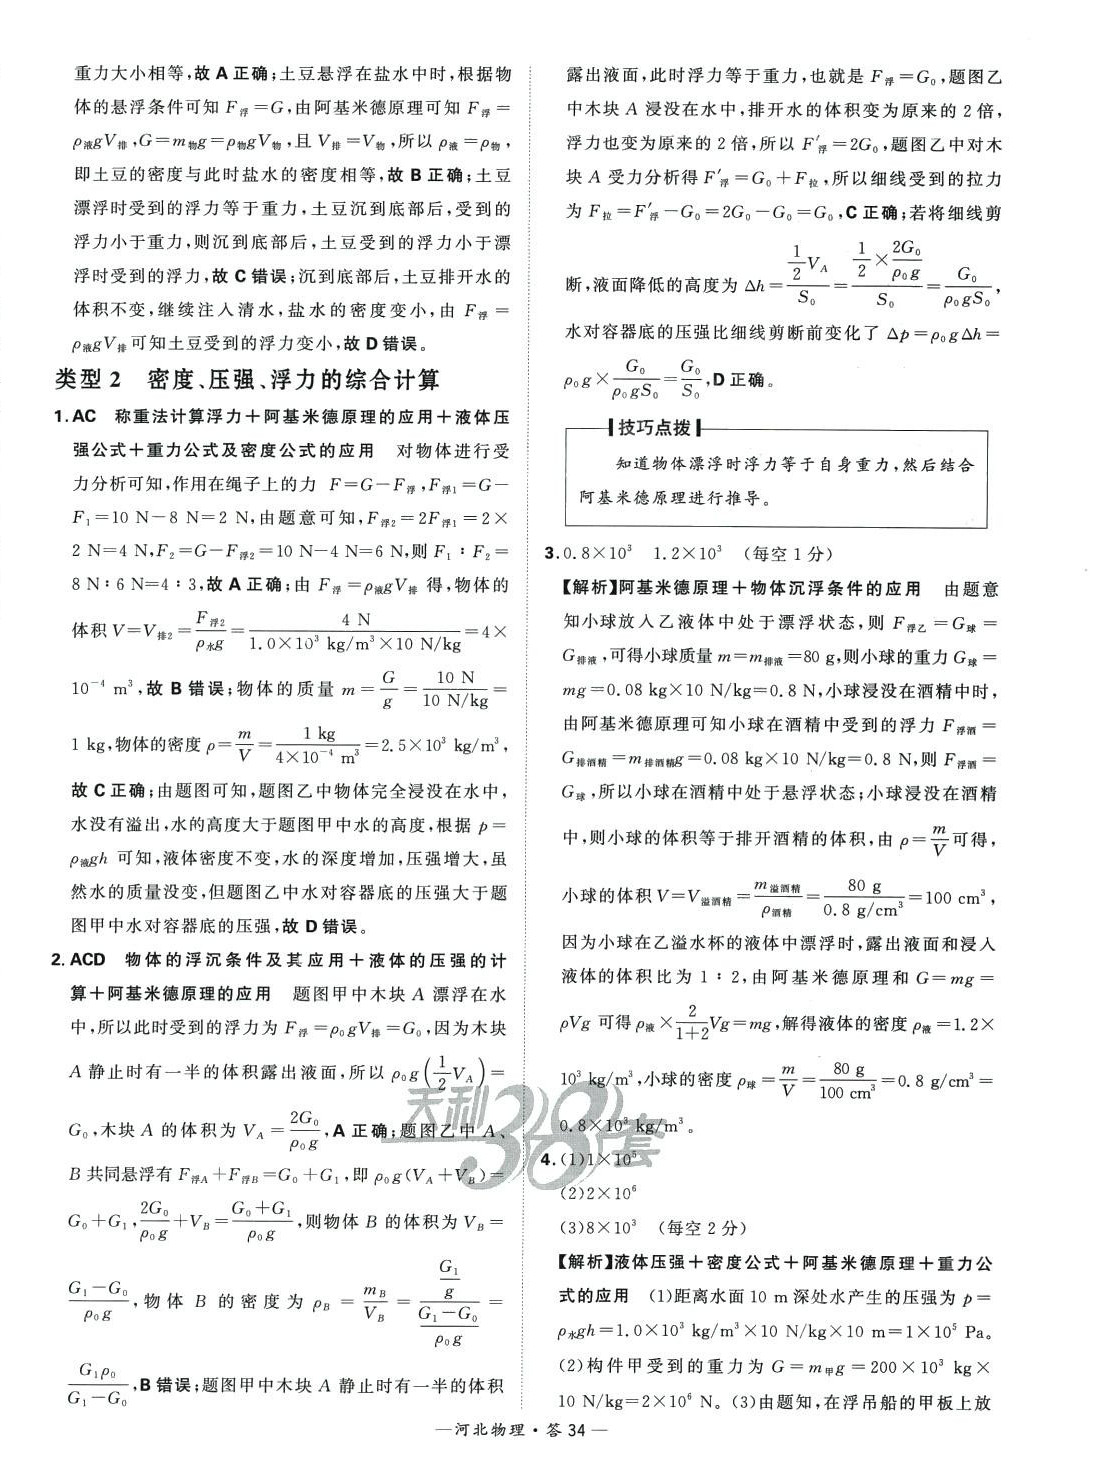 重力大小相等,故 A 正确;土豆悬浮在盐水中时,根据物
体的悬浮条件可知 F浮=G,由阿基米德原理可知 F浮=
ρ液gV排,G=m物g=ρ物gV物,且 V排=V物,所以 ρ液=ρ物,
即土豆的密度与此时盐水的密度相等,故 B 正确;土豆
漂浮时受到的浮力等于重力,土豆沉到底部后,受到的
浮力小于重力,则沉到底部后,土豆受到的浮力小于漂
浮时受到的浮力,故 C 错误;沉到底部后,土豆排开水的
体积不变,继续注入清水,盐水的密度变小,由 F浮=
ρ液gV排 可知土豆受到的浮力变小,故 D 错误。
类型 2 密度、压强、浮力的综合计算
1. AC 称重法计算浮力+阿基米德原理的应用+液体压
强公式+重力公式及密度公式的应用 对物体进行受
力分析可知,作用在绳子上的力 F=G-F浮,F浮1=G-
F₁=10 N-8 N=2 N,由题意可知,F浮2=2F浮1=2×
2 N=4 N,F₂=G-F浮2=10 N-4 N=6 N,则 F₁∶F₂=
8 N∶6 N=4∶3,故 A 正确;由 F浮=ρ液gV排 得,物体的
体积 V=V排2=F浮2/ρ水g=4 N/1.0×10³ kg/m³×10 N/kg=4×
10⁻⁴ m³,故 B 错误;物体的质量 m=G/g=10 N/10 N/kg=
1 kg,物体的密度 ρ=m/V=1 kg/4×10⁻⁴ m³=2.5×10³ kg/m³,
故 C 正确;由题图可知,题图乙中物体完全浸没在水中,
水没有溢出,水的高度大于题图甲中水的高度,根据 p=
ρ液gh 可知,液体密度不变,水的深度增加,压强增大,虽
然水的质量没变,但题图乙中水对容器底的压强大于题
图甲中水对容器底的压强,故 D 错误。
2. ACD 物体的浮沉条件及其应用+液体的压强的计
算+阿基米德原理的应用 题图甲中木块 A 漂浮在水
中,所以此时受到的浮力为 F浮=ρ₀gV排=G₀,因为木块
A 静止时有一半的体积露出液面,所以 ρ₀g(1/2V_A)=
G₀,木块 A 的体积为 V_A=2G₀/ρ₀g,A 正确;题图乙中 A、
B 共同悬浮有 F浮A+F浮B=G₀+G₁,即 ρ₀g(V_A+V_B)=
G₀+G₁,2G₀/ρ₀g+V_B=G₀+G₁/ρ₀g,则物体 B 的体积为 V_B=
G₁-G₀/ρ₀g,物体 B 的密度为 ρ_B=m_B/V_B=(G₁/g)/(G₁-G₀/ρ₀g)=
G₁ρ₀/G₁-G₀,B 错误;题图甲中木块 A 静止时有一半的体积
露出液面,此时浮力等于重力,也就是 F浮=G₀,题图乙
中木块 A 浸没在水中,排开水的体积变为原来的 2 倍,
浮力也变为原来的 2 倍,所以 F′浮=2G₀,题图乙中对木
块 A 受力分析得 F′浮=G₀+F拉,所以细线受到的拉力
为 F拉=F′浮-G₀=2G₀-G₀=G₀,C 正确;若将细线剪
断,液面降低的高度为 Δh=(1/2V_A)/S₀=(1/2×2G₀/ρ₀g)/S₀=G₀/ρ₀gS₀,
水对容器底的压强比细线剪断前变化了 Δp=ρ₀gΔh=
ρ₀g×G₀/ρ₀gS₀=G₀/S₀,D 正确。
技巧点拨
知道物体漂浮时浮力等于自身重力,然后结合
阿基米德原理进行推导。
3. 0.8×10³ 1.2×10³ (每空 1 分)
【解析】阿基米德原理+物体沉浮条件的应用 由题意
知小球放入乙液体中处于漂浮状态,则 F浮乙=G球=
G排液,可得小球质量 m=m排液=80 g,则小球的重力 G球=
mg=0.08 kg×10 N/kg=0.8 N,小球浸没在酒精中时,
由阿基米德原理可知小球在酒精中受到的浮力 F浮酒=
G排酒精=m排酒精g=0.08 kg×10 N/kg=0.8 N,则 F浮酒=
G球,所以小球在酒精中处于悬浮状态;小球浸没在酒精
中,则小球的体积等于排开酒精的体积,由 ρ=m/V可得,
小球的体积 V=V溢酒精=m溢酒精/ρ酒精=80 g/0.8 g/cm³=100 cm³,
因为小球在乙溢水杯的液体中漂浮时,露出液面和浸入
液体的体积比为 1∶2,由阿基米德原理和 G=mg=
ρVg 可得 ρ液×2/1+2Vg=mg,解得液体的密度 ρ液=1.2×
10³ kg/m³,小球的密度 ρ球=m/V=80 g/100 cm³=0.8 g/cm³=
0.8×10³ kg/m³。
4. (1)1×10⁵
(2)2×10⁶
(3)8×10³ (每空 2 分)
【解析】液体压强+密度公式+阿基米德原理+重力公
式的应用 (1)距离水面 10 m 深处水产生的压强为 p=
ρ水gh=1.0×10³ kg/m³×10 N/kg×10 m=1×10⁵ Pa。
(2)构件甲受到的重力为 G=m甲g=200×10³ kg×
10 N/kg=2×10⁶ N。(3)由题知,在浮吊船的甲板上放
天利38套
—河北物理·答 34—